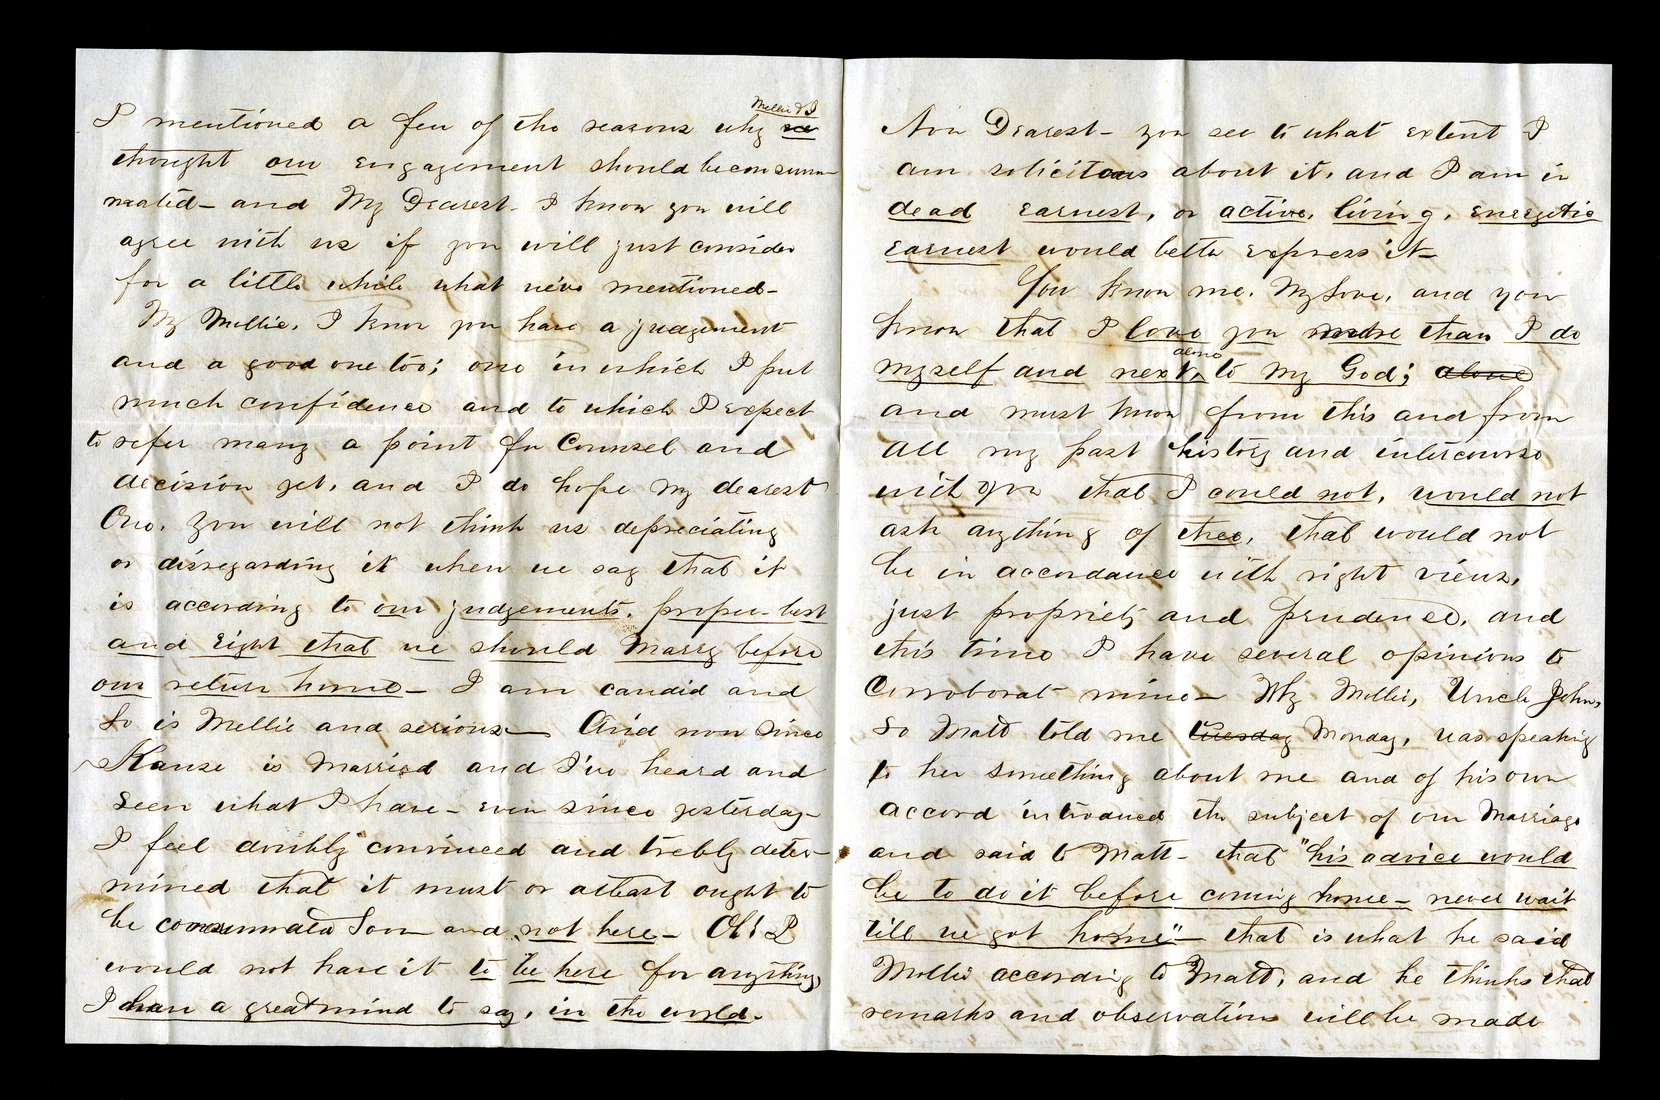 I mentioned a few of the reasons why we Mellie & I
thought our engagement should be consum
mated - and My Dearest - I know you will
agree with us if you will just consider
for a little while what we've mentioned -
My Mollie, I know you have a judgement
and a good one too; one in which I put
much confidence and to which I expect
to refer many a point for Counsel and
decision yet, and I do hope my dearest
One, you will not think us depreciating
or disregarding it when we say that it
is according to our judgements, proper - best
and right that we should Marry before
our return home - I am candid and
So is Mellie and serious - And now since
Kause is Married and I've heard and
seen what I have - even since yesterday -
I feel doubly convinced and trebly deter-
mined that it must or atleast ought to
be consummated Soon and not here - Oh! I
would not have it to be here for anything,
I have a great mind to say, in the world.
Now Dearest - you see to what extent I
am solicitous about it, and I am in
dead earnest, or active, living, energetic
earnest would better express it -
You know me, My Love, and you
know that I love you more than I do
myself and next alone to my God; alone
and must know from this and from
all my past history and intercourse
with you that I could not, would not
ask anything of thee, that would not
be in accordance with right views,
just propriety and prudence, and
this time I have several opinions to
Corroborat mine - Why Mollie, Uncle John,
So Matt told me tuesday Monday, was speaking
to her something about me and of his own
accord introduced the subject of our Marriage
and said to Matt - that "his advice would
be to do it before coming home - never wait
till we got home" - that is what he said
Mollie according to Matt, and he thinks that
remarks and observations will be made